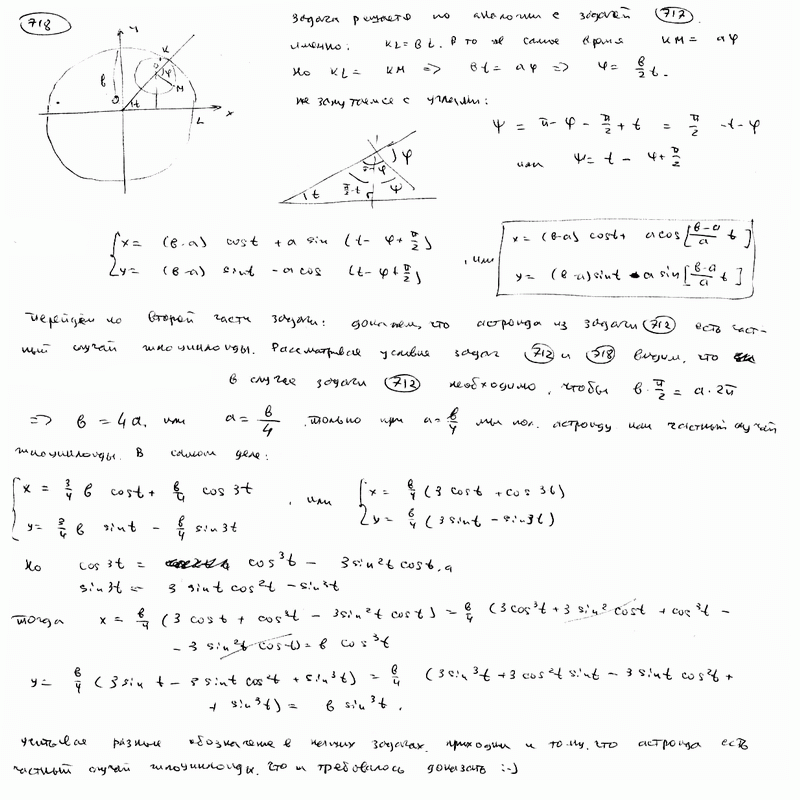 718
Задача решается по аналогии с задачей 712.
именно: KL = вt. В то же самое время KM = aφ
Но KL = KM => вt = aφ => φ = в/a t.
Не запутаемся с углами:
y
K
φ
M
в
t
x
L
ψ = π - φ - π/2 + t = π/2 - t - φ
или ψ = t - φ + π/2
t π/2-t π-φ φ ψ
{ x = (в-a) cost + a sin (t - φ + π/2)
{ y = (в-a) sint - a cos (t - φ + π/2)
, или
x = (в-a) cost + a cos[(в-a)/a t]
y = (в-a) sint - a sin[(в-a)/a t]
Перейдём ко второй части задачи: докажем, что астроида из задачи 712 есть част-
ный случай гипоциклоиды. Рассматривая условие задач 712 и 718 видим, что
в случае задачи 712 необходимо, чтобы в·π/2 = a·2π
=> в = 4a, или a = в/4. Только при a = в/4 мы пол. астроиду как частный случай
гипоциклоиды. В самом деле:
{ x = 3/4 в cost + в/4 cos 3t
{ y = 3/4 в sint - в/4 sin 3t
, или
{ x = в/4 (3 cost + cos 3t)
{ y = в/4 (3 sint - sin 3t)
Но cos 3t = cos³t - 3 sin²t cost, а
sin 3t = 3 sint cos²t - sin³t
Тогда x = в/4 (3 cost + cos³t - 3 sin²t cost) = в/4 (3 cos³t + 3 sin²cost + cos³t -
- 3 sin²t cost) = в cos³t
y = в/4 (3 sint - 3 sint cos²t + sin³t) = в/4 (3 sin³t + 3 cos²t sint - 3 sint cos²t +
+ sin³t) = в sin³t.
Учитывая разные обозначение в наших задачах, приходим к тому, что астроида есть
частный случай гипоциклоиды, что и требовалось доказать :-)